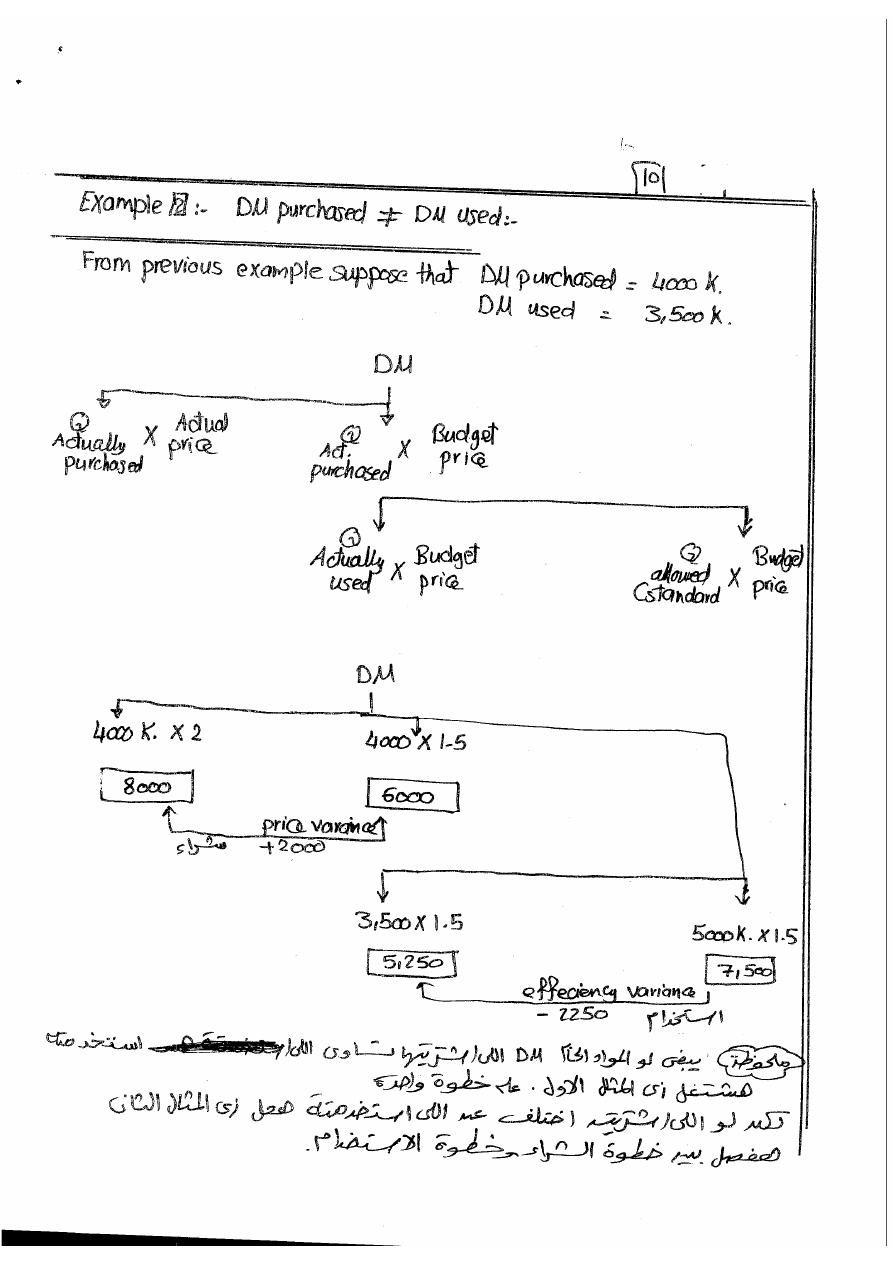 10
Example 2 :- DM purchased ≠ DM used:-
From previous example suppose that DM purchased = 4000 K.
DM used = 3,500 K.
DM
Q Actually purchased X Actual price
Q Act. purchased X Budget price
Q Actually used X Budget price
Q allowed Cstandard X Budget price
DM
4000 K. X 2
4000 X 1-5
8000
6000
price variance
شراء +2000
3,500 X 1.5
5000 K. X 1.5
5,250
7,500
effeciency variance
- 2250 استخدام
ملحوظة يبقى لو المواد الخام DM اللى اشتريتها تساوى اللى استخدمته
هنشتغل زى المثال الاول . على خطوة واحدة
لكن لو اللى اشتريته اختلف عن اللى استخدمته هعمل زى المثال الثانى
هفصل بين خطوة الشراء وخطوة الاستخدام.